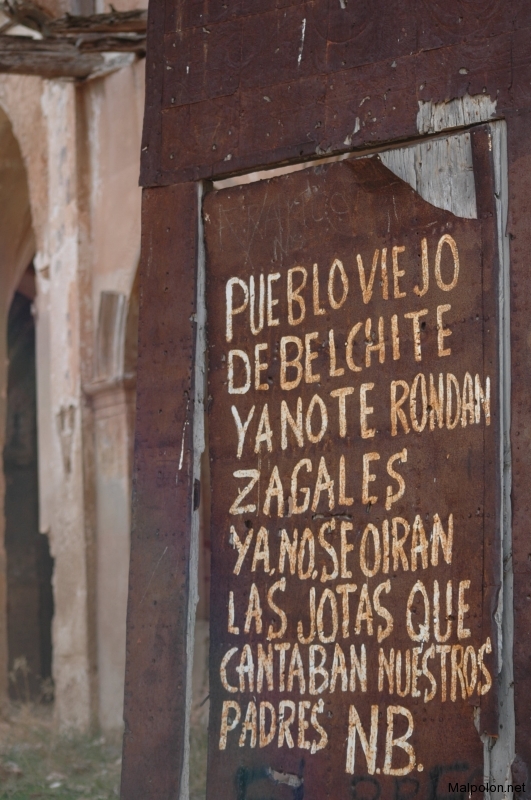 PUEBLO VIEJO
DE BELCHITE
YA NO TE RONDAN
ZAGALES
YA.NO.SE OIRAN
LAS JOTAS QUE
CANTABAN NUESTROS
PADRES N.B.
Malpolon.net